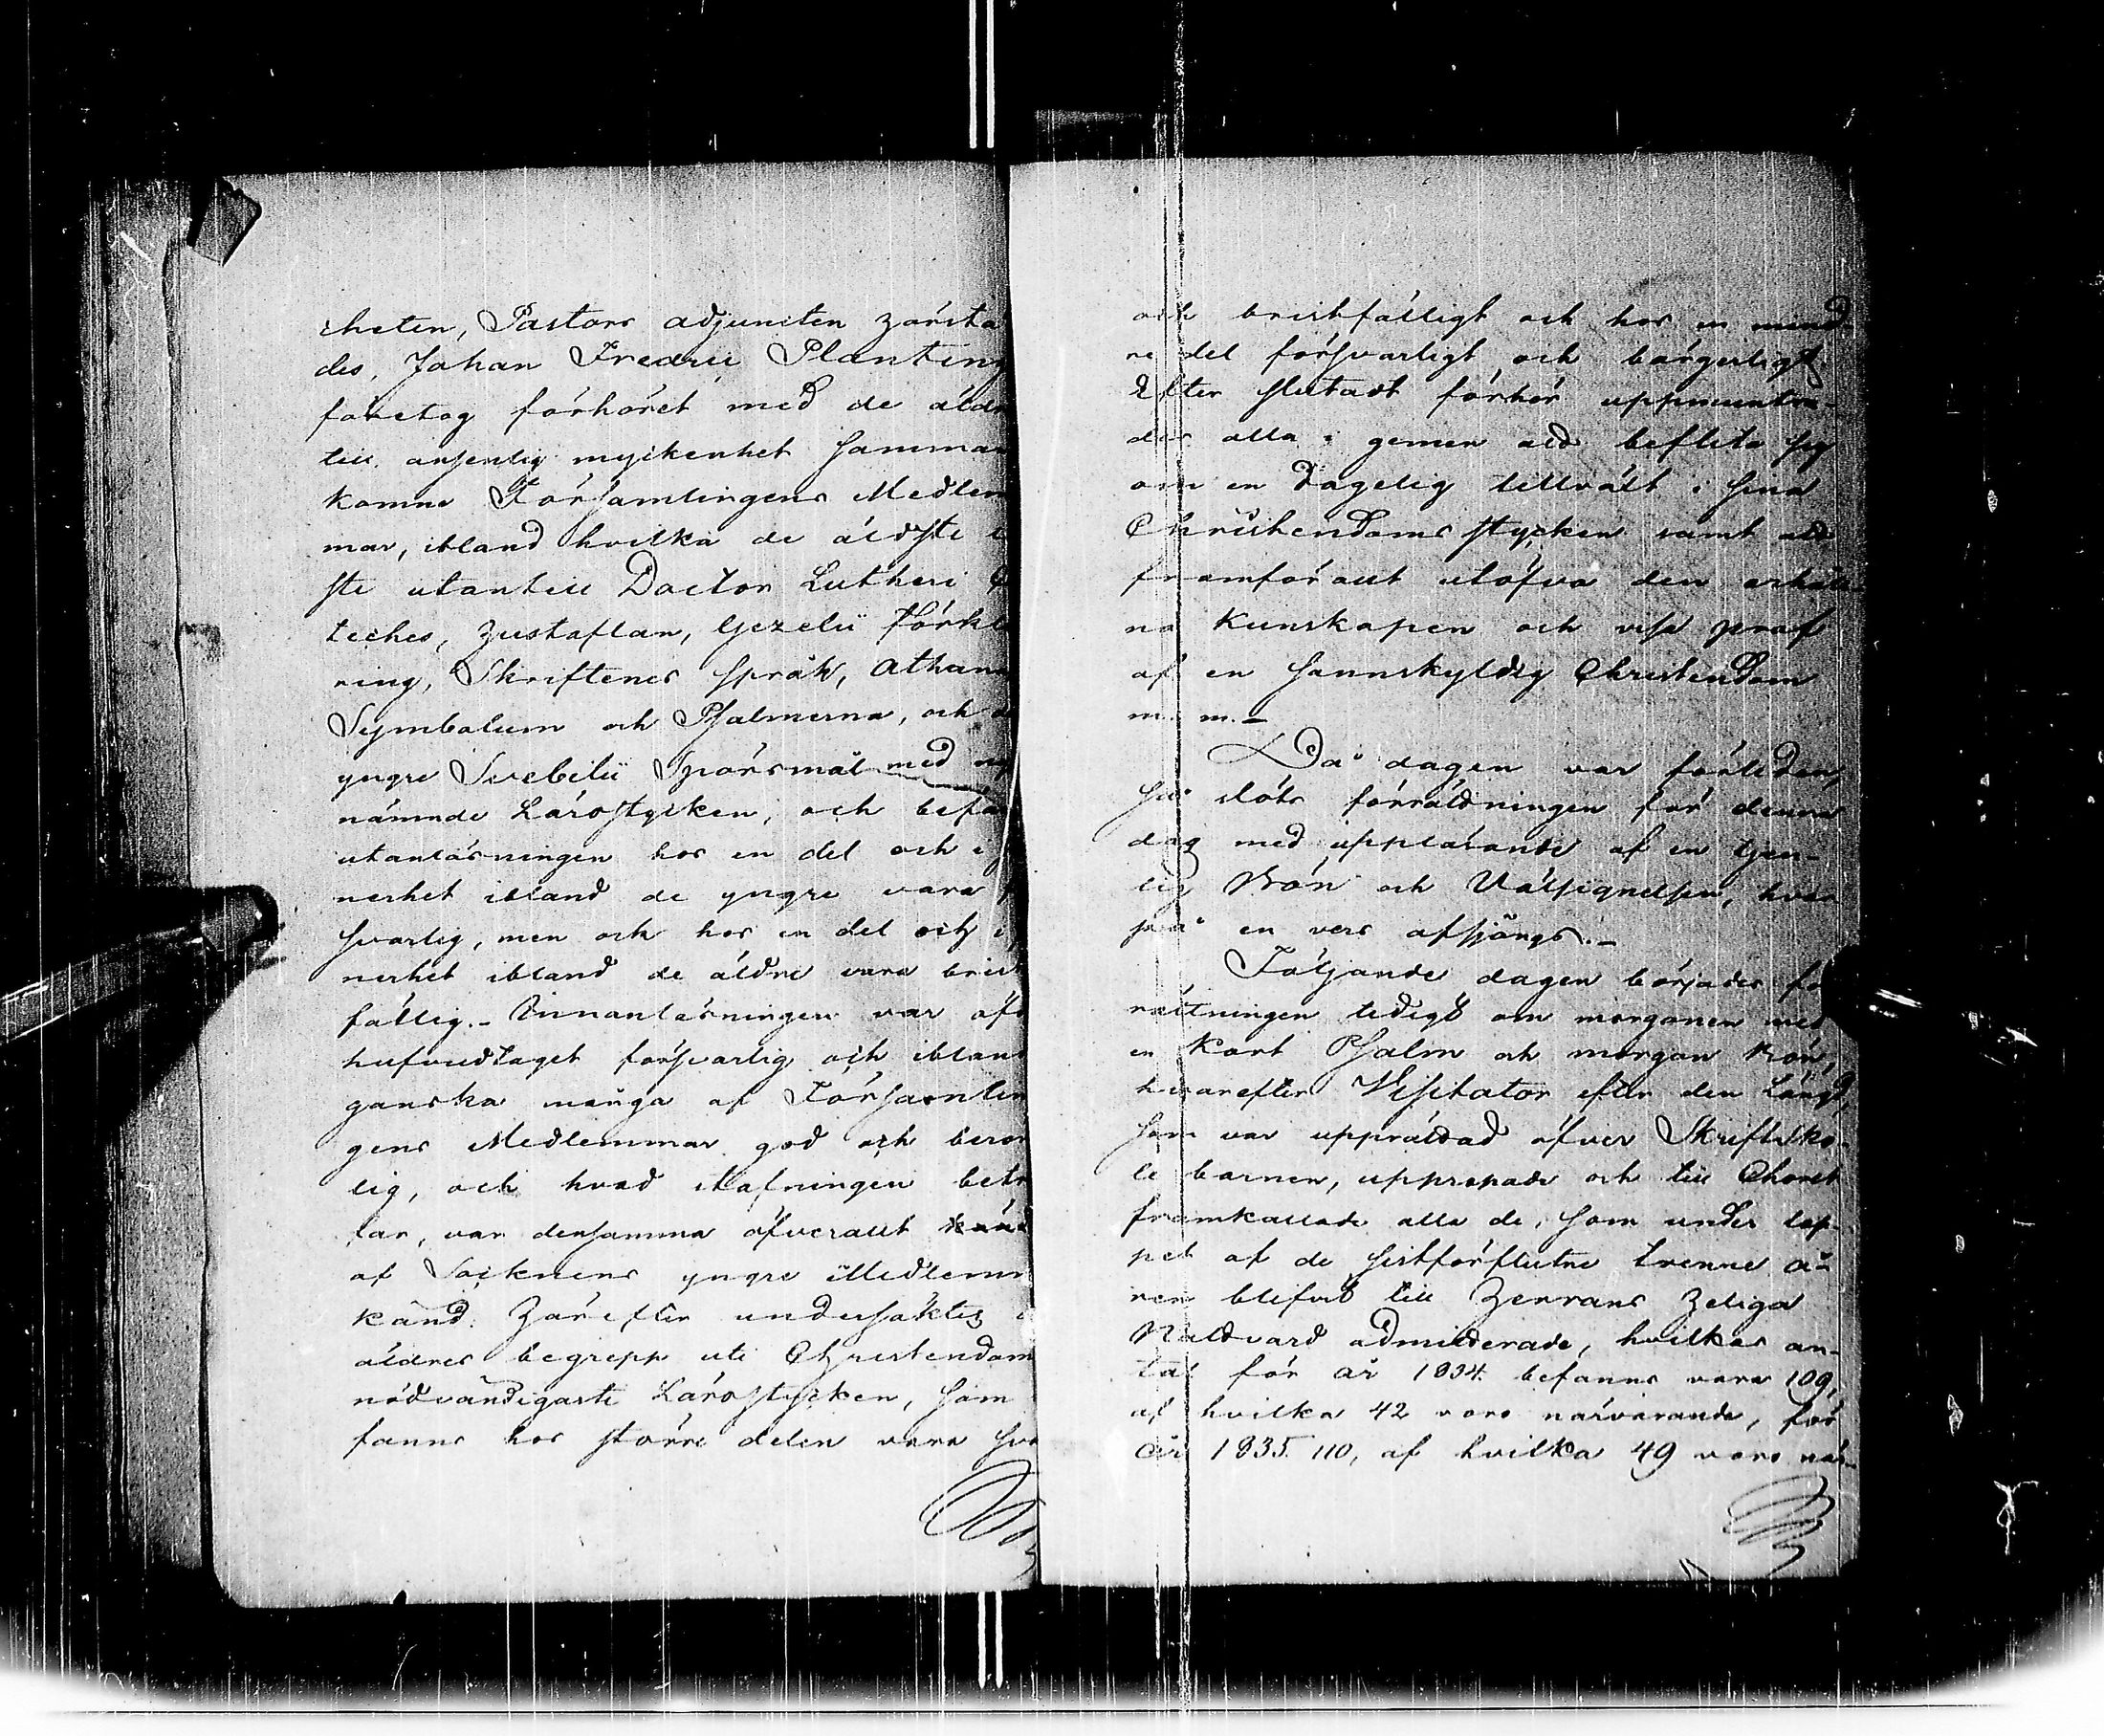 cheten, Pastors adjuncten härsta
des, Johan Fredric Planting
företog förhöret med de äldr
till ansenlig myckenhet samman
komne Församlingens Medlem
mar, ibland hvilka de äldste l
ste utantill Doctor Lutheri C
teches, Hustaflan, Gezelii Förkla
ring, Skriftenes språk, Athana
Symbolum och Psalmerna, och d
yngre Svebilii Spörsmål med
nämnde Lärostycken, och befa
utanläsningen hos en del och i
nerhet ibland de yngre vara f
svarlig, men och hos en del och i
nerhet ibland de äldre vara brist
fällig. - Innanläsningen var öf
hufvudtaget försvarlig och ibland
ganska många af Församlin
gens Medlemmar god och beröm
lig, och hvad stafningen betr
far, var densamma öfverallt
af Socknens yngre Medlemm
känd. Härefter undersöktes d
äldres begrepp uti Christendom
nödvändigaste Lärostycken, som
fanns hos större delen vara sva
och bristfälligt och hos en mind
re del försvarligt och bärgerligt
Efter slutadt förhör uppmuntra-
des alla i gemen att beflita sig
om en dagelig tillväxt i sina
Christendoms stycken samt att
framför allt utöfva den erhåll-
na Kunskapen och visa prof
af en sannskyldig Christendom
m. m. -
Då dagen var förliden,
så slöts förrättningen för denna
dag med uppläsande af en tjen-
lig Bön och Välsignelsen, hvar
på en vers afsjöngs. -
Följande dagen börjades för
rättningen tidigt om morgonen med
en kort Psalm och morgon bön,
hvarefter Visitator efter den Längd,
som var upprättad öfver Skriftsko-
le barnen, uppropade och till Choret
framkallade alla de, som under lop-
pet af de sistförflutne trenne å-
ren blifvit till Herrans Heliga
Nattvard admitterade, hvilkas an-
tal för år 1834 befanns vara 109,
af hvilka 42 voro närvarande, för
år 1835. 110, af hvilka 49 voro när-